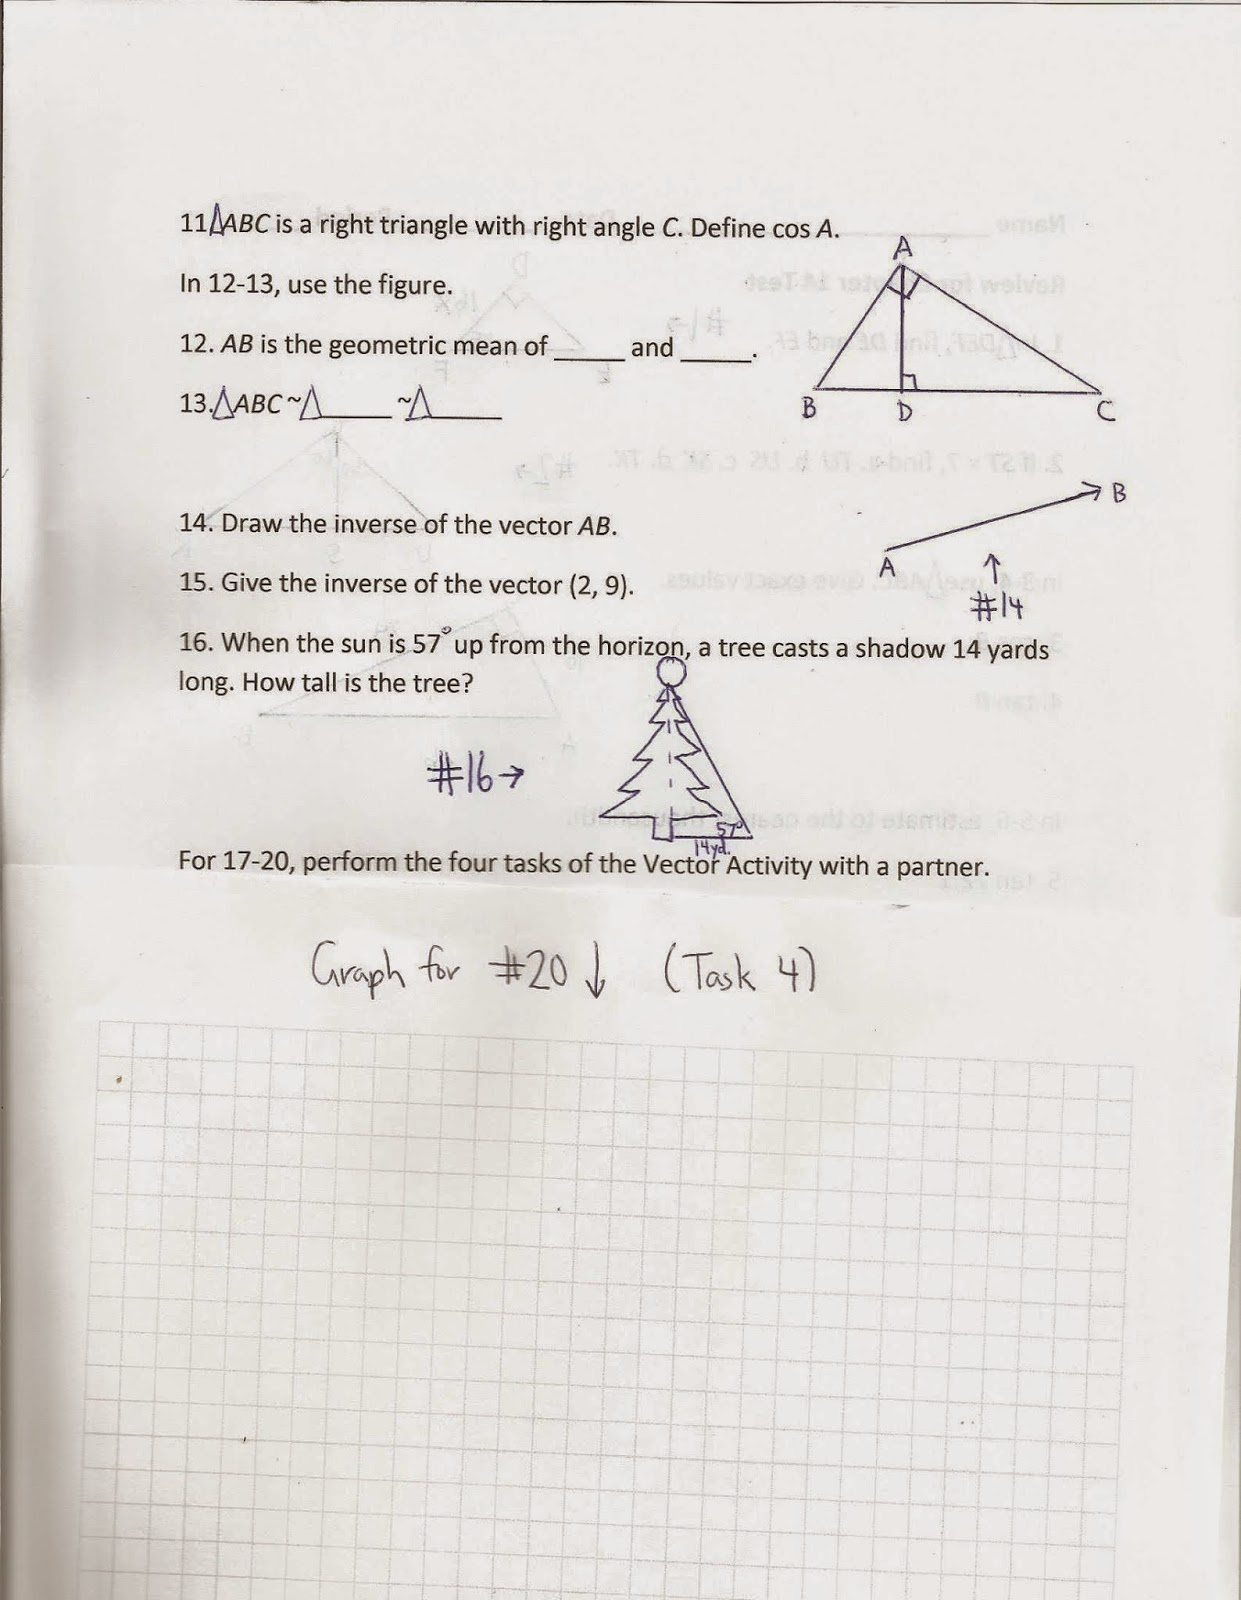 11.△ABC is a right triangle with right angle C. Define cos A.
In 12-13, use the figure.
12. AB is the geometric mean of _____ and _____.
13.△ABC ~△_____ ~△_____
A
B
D
C
14. Draw the inverse of the vector AB.
B
A
↑
#14
15. Give the inverse of the vector (2, 9).
16. When the sun is 57° up from the horizon, a tree casts a shadow 14 yards
long. How tall is the tree?
#16→
57°
14yd.
For 17-20, perform the four tasks of the Vector Activity with a partner.
Graph for #20 ↓ (Task 4)